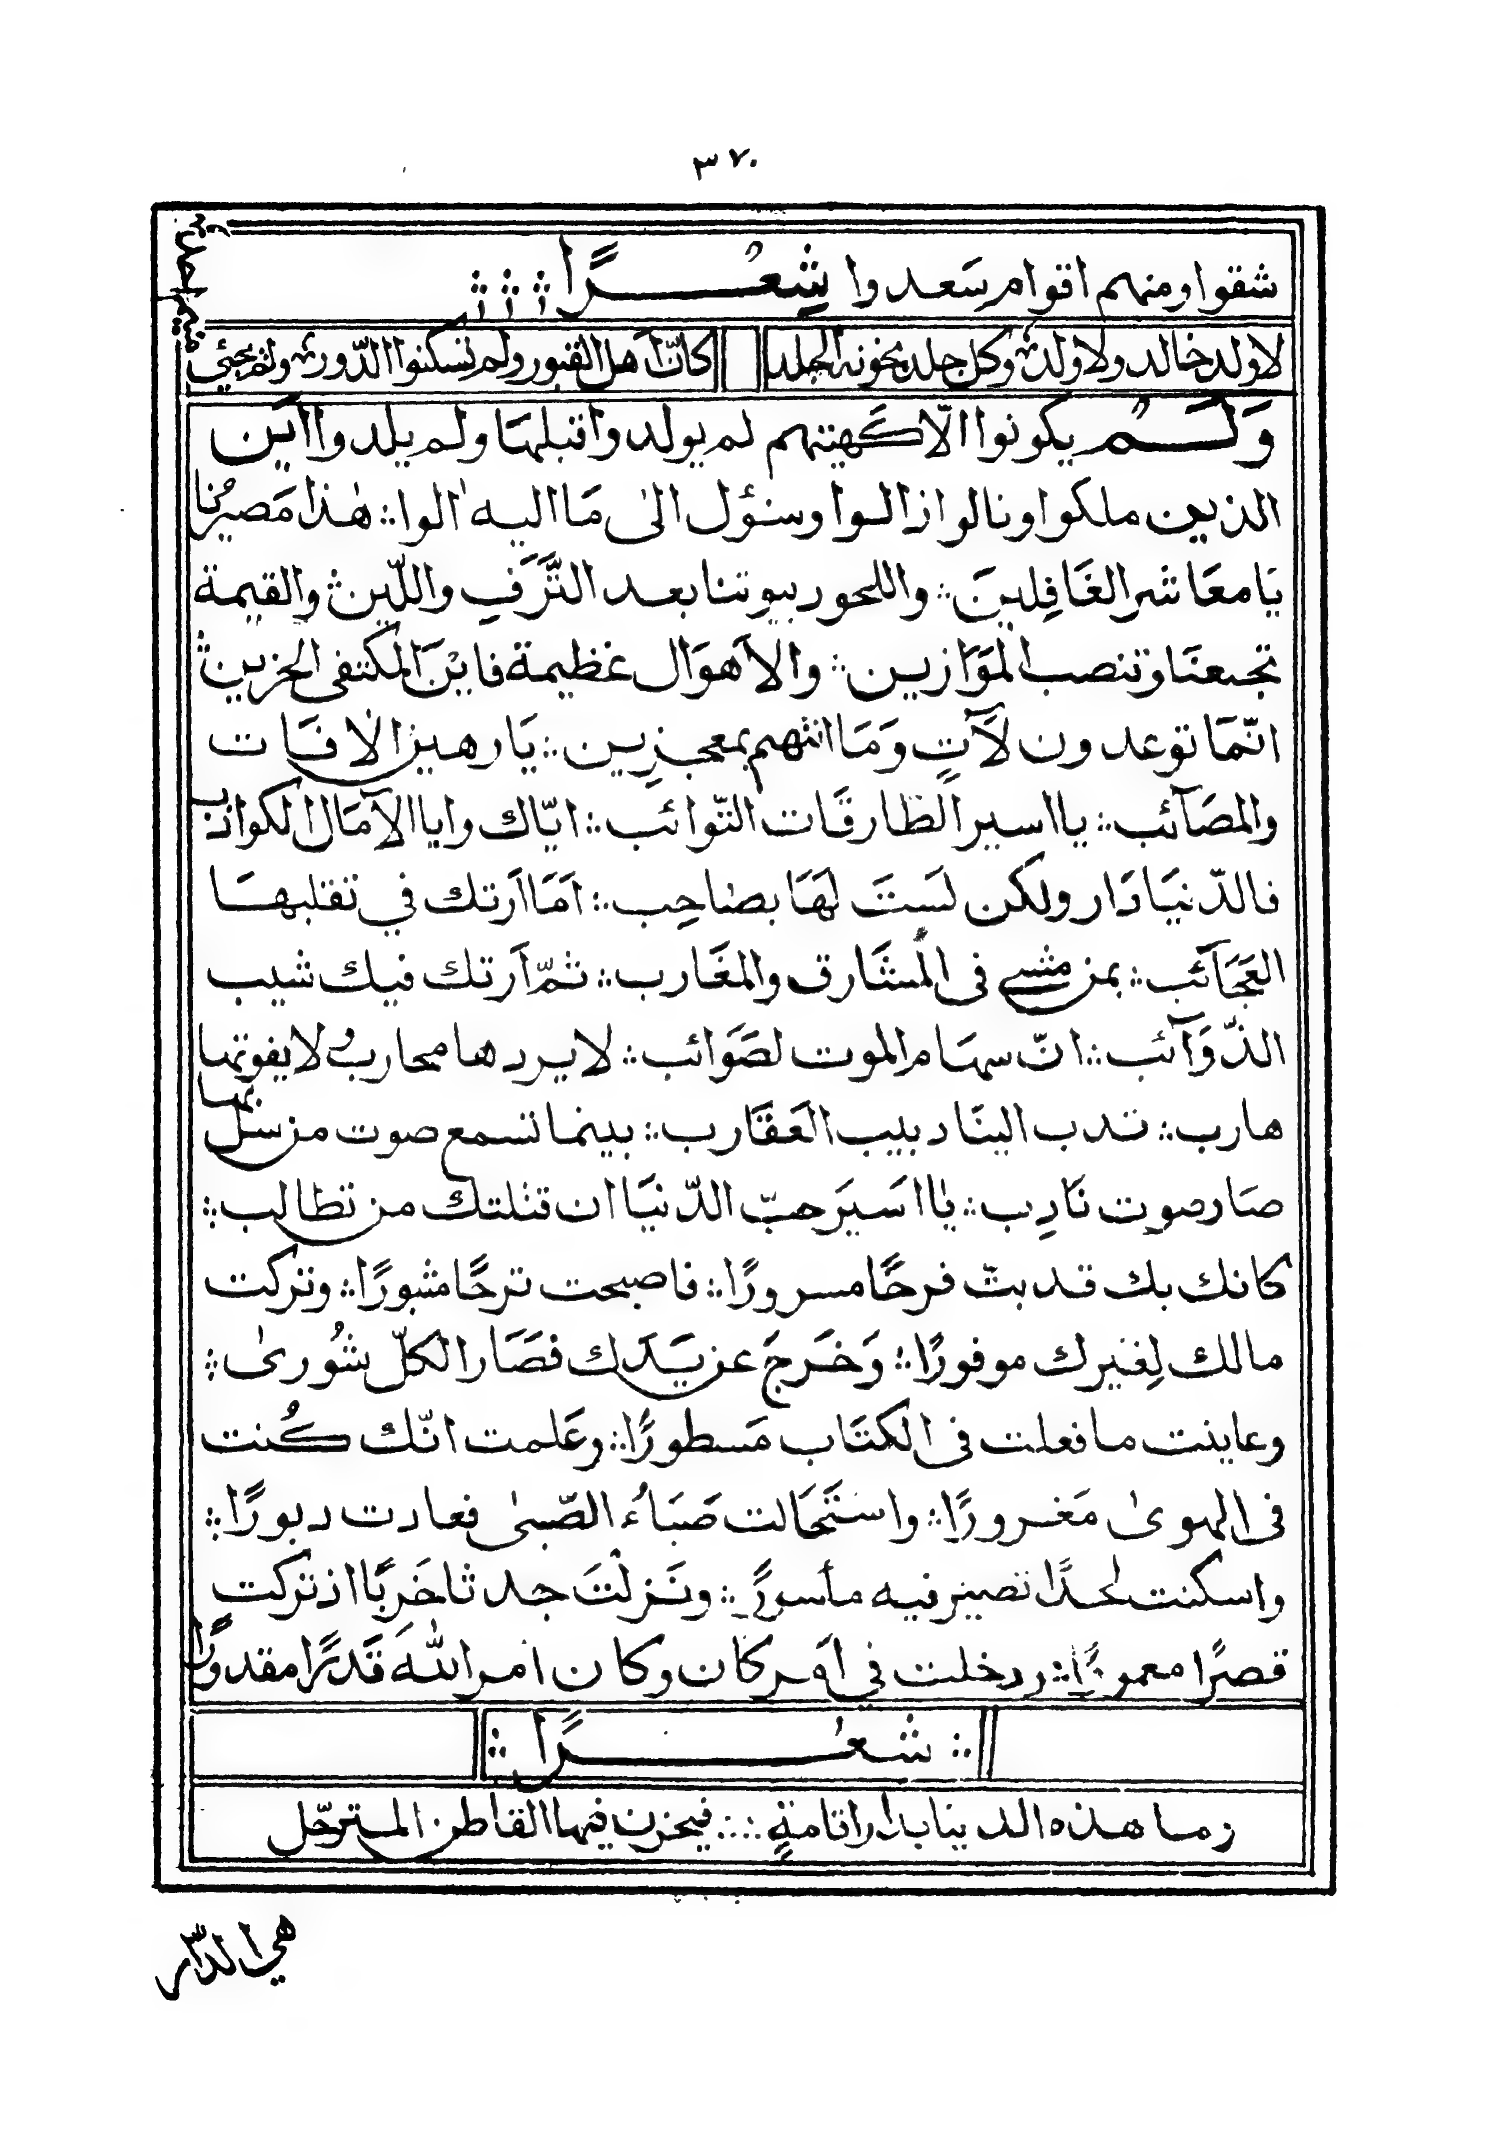 ٣٧٠
شقوا ومنهم اقوام سَعدوا شِعْرًا
لا ولد خالد ولا ولدت وكل جلد يخونه الجلد كانّ اهل القبور ولم تسكنوا الدّور ولم يحيَ
وَلَم يكونوا الّا كَهيتهم لم يولدوا قبلهَا ولم يلدوا اَين
الذين ملكوا ونالوا زالوا وسئول الىٰ مَا اليه اٰلوا ؞ هٰذا مَصيرُنا
يَا معَاشر الغَافِلينَ ؞ واللحور بيوتنا بعد التَّرَفِ واللّين ؞ والقيمة
تجمعنَا وتنصب الموَازين ؞ والاَهوَال عَظيمة فاين المكتفى الحزين ؞
انّمَا توعدون لَآتٍ وَمَا انتم بمعجزِين ؞ يَا رهين الافَات
والمصَآئب ؞ يا اسير الطَارقَات النّوائب ؞ ايّاك وايا الآمَال الكواذب
فالدّنيَا دَار ولكن لسَتَ لهَا بصَاحِب ؞ اَمَا اَرتك في تقلبهَا
العَجَآئب ؞ بمن مشے فى المشَارق والمغَارب ؞ ثمّ اَرتك فيك شيب
الذّوَآئب ؞ انّ سهَام الموت لصَوَائب ؞ لا يردها محاربُ لا يفوتها
هارب ؞ تدب الينَا دبيب العَقَارب ؞ بينما تسمع صوت مزسل بها
صَار صوت نَادِب ؞ يٰا اسَيرَ حبّ الدّنيَا ان قتلتك من تطالب ؞
كانك بك قد بتّ فرحًا مسرورًا ؞ فاصبحت ترحًا مثبورًا ؞ وتركت
مالك لِغيرك موفورًا ؞ وَخَرجَ عن يَدَك فصَار الكلّ شُورىٰ ؞
وعاينت ما فعلت فى الكتَاب مَسطورًا ؞ وعَلمت انّك كُنت
فى الهوىٰ مَغرورًا ؞ واستَحَالت صَبَاءُ الصّبىٰ فعادت دبورًا ؞
واسكنت لحدًا تصير فيه مأسورًا ؞ ونَزلتَ جدثا خَربًا اذ تركت
قصرًا معمورًا ؞ ردخلت في اَمر كَان وكان امر اللّه قَدَرًا مقدورًا
؞ شعْرًا ؞
زما هذه الدينا بدار اقامةٍ ؞ فيحزن فيها القاطن المترحّل
هي الدّار